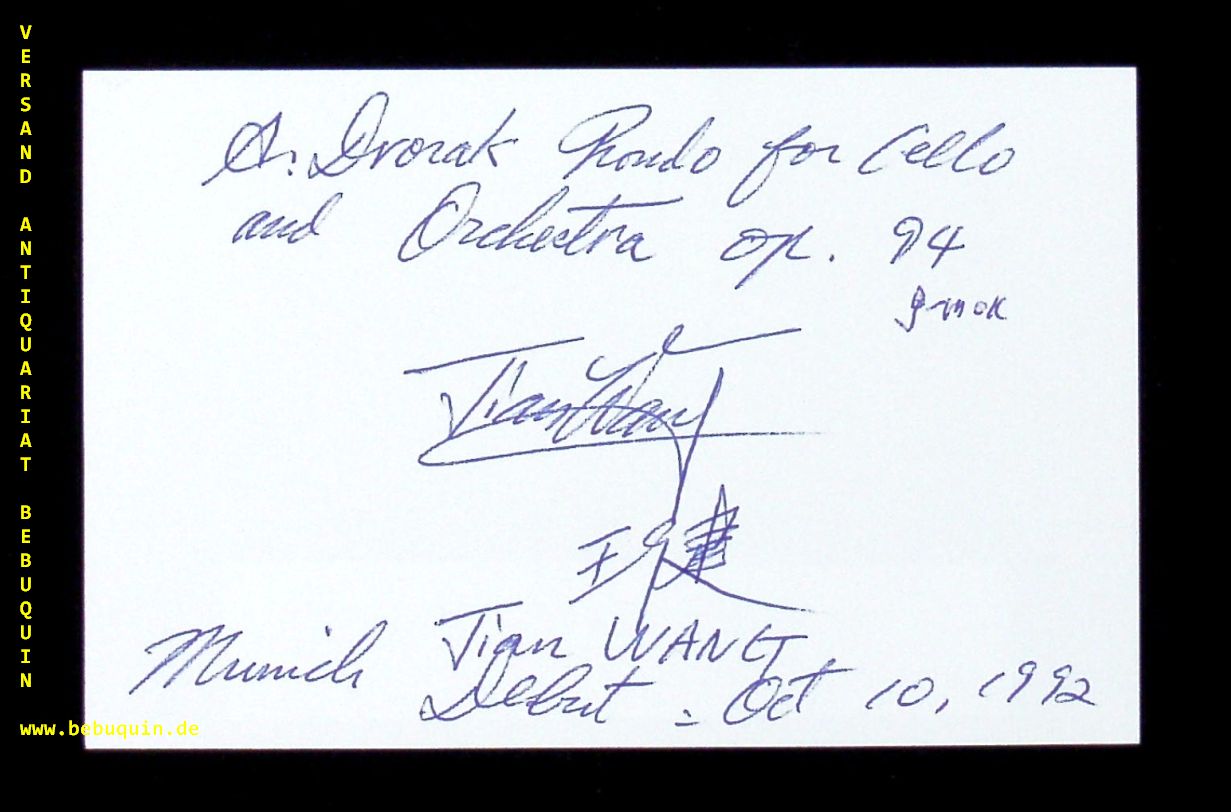 VERSAND ANTIQUARIAT BEBUQUIN
A. Dvorak Rondo for Cello
and Orchestra op. 94
g-moll
Jian Wang
王健
Jian WANG
Munich Debut - Oct 10, 1992
www.bebuquin.de